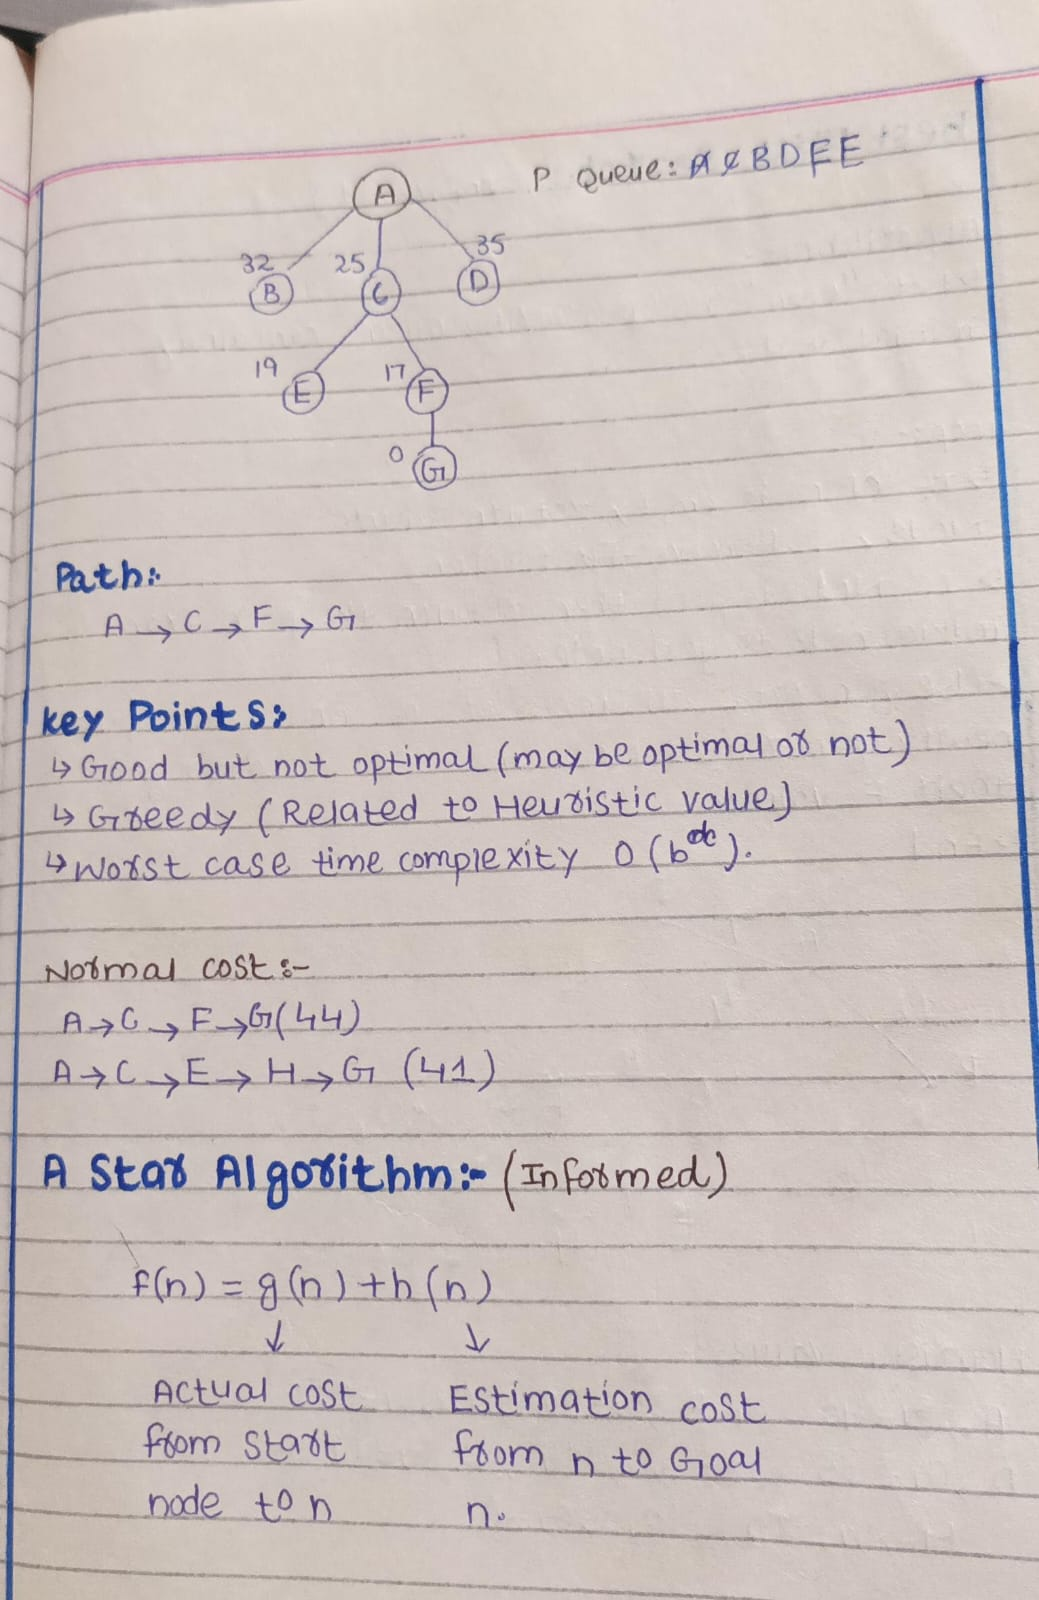 P Queue: A C B D F E
A
32 25 35
B C D
19 17
E F
0
G
Path:-
A → C → F → G
Key Points:
↳ Good but not optimal (may be optimal or not)
↳ Greedy (Related to Heuristic value)
↳ Worst case time complexity O(b^d).
Normal cost:-
A → C → F → G (44)
A → C → E → H → G (41)
A Star Algorithm:- (Informed)
f(n) = g(n) + h(n)
↓ ↓
Actual cost Estimation cost
from start from n to Goal
node to n n.